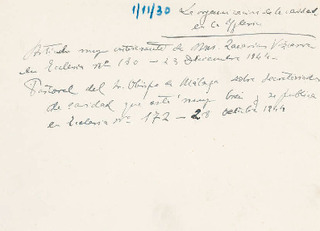 1/11/30 La organización de la caridad
en la Iglesia
Artículo muy interesante de Mons. Vizcarra
en Ecclesia nº 180 - 23 Diciembre 1944-
Pastoral del Sr. Obispo de Málaga sobre
de caridad que está muy bien y se publica
en Ecclesia nº 172 - 28 octubre 1944